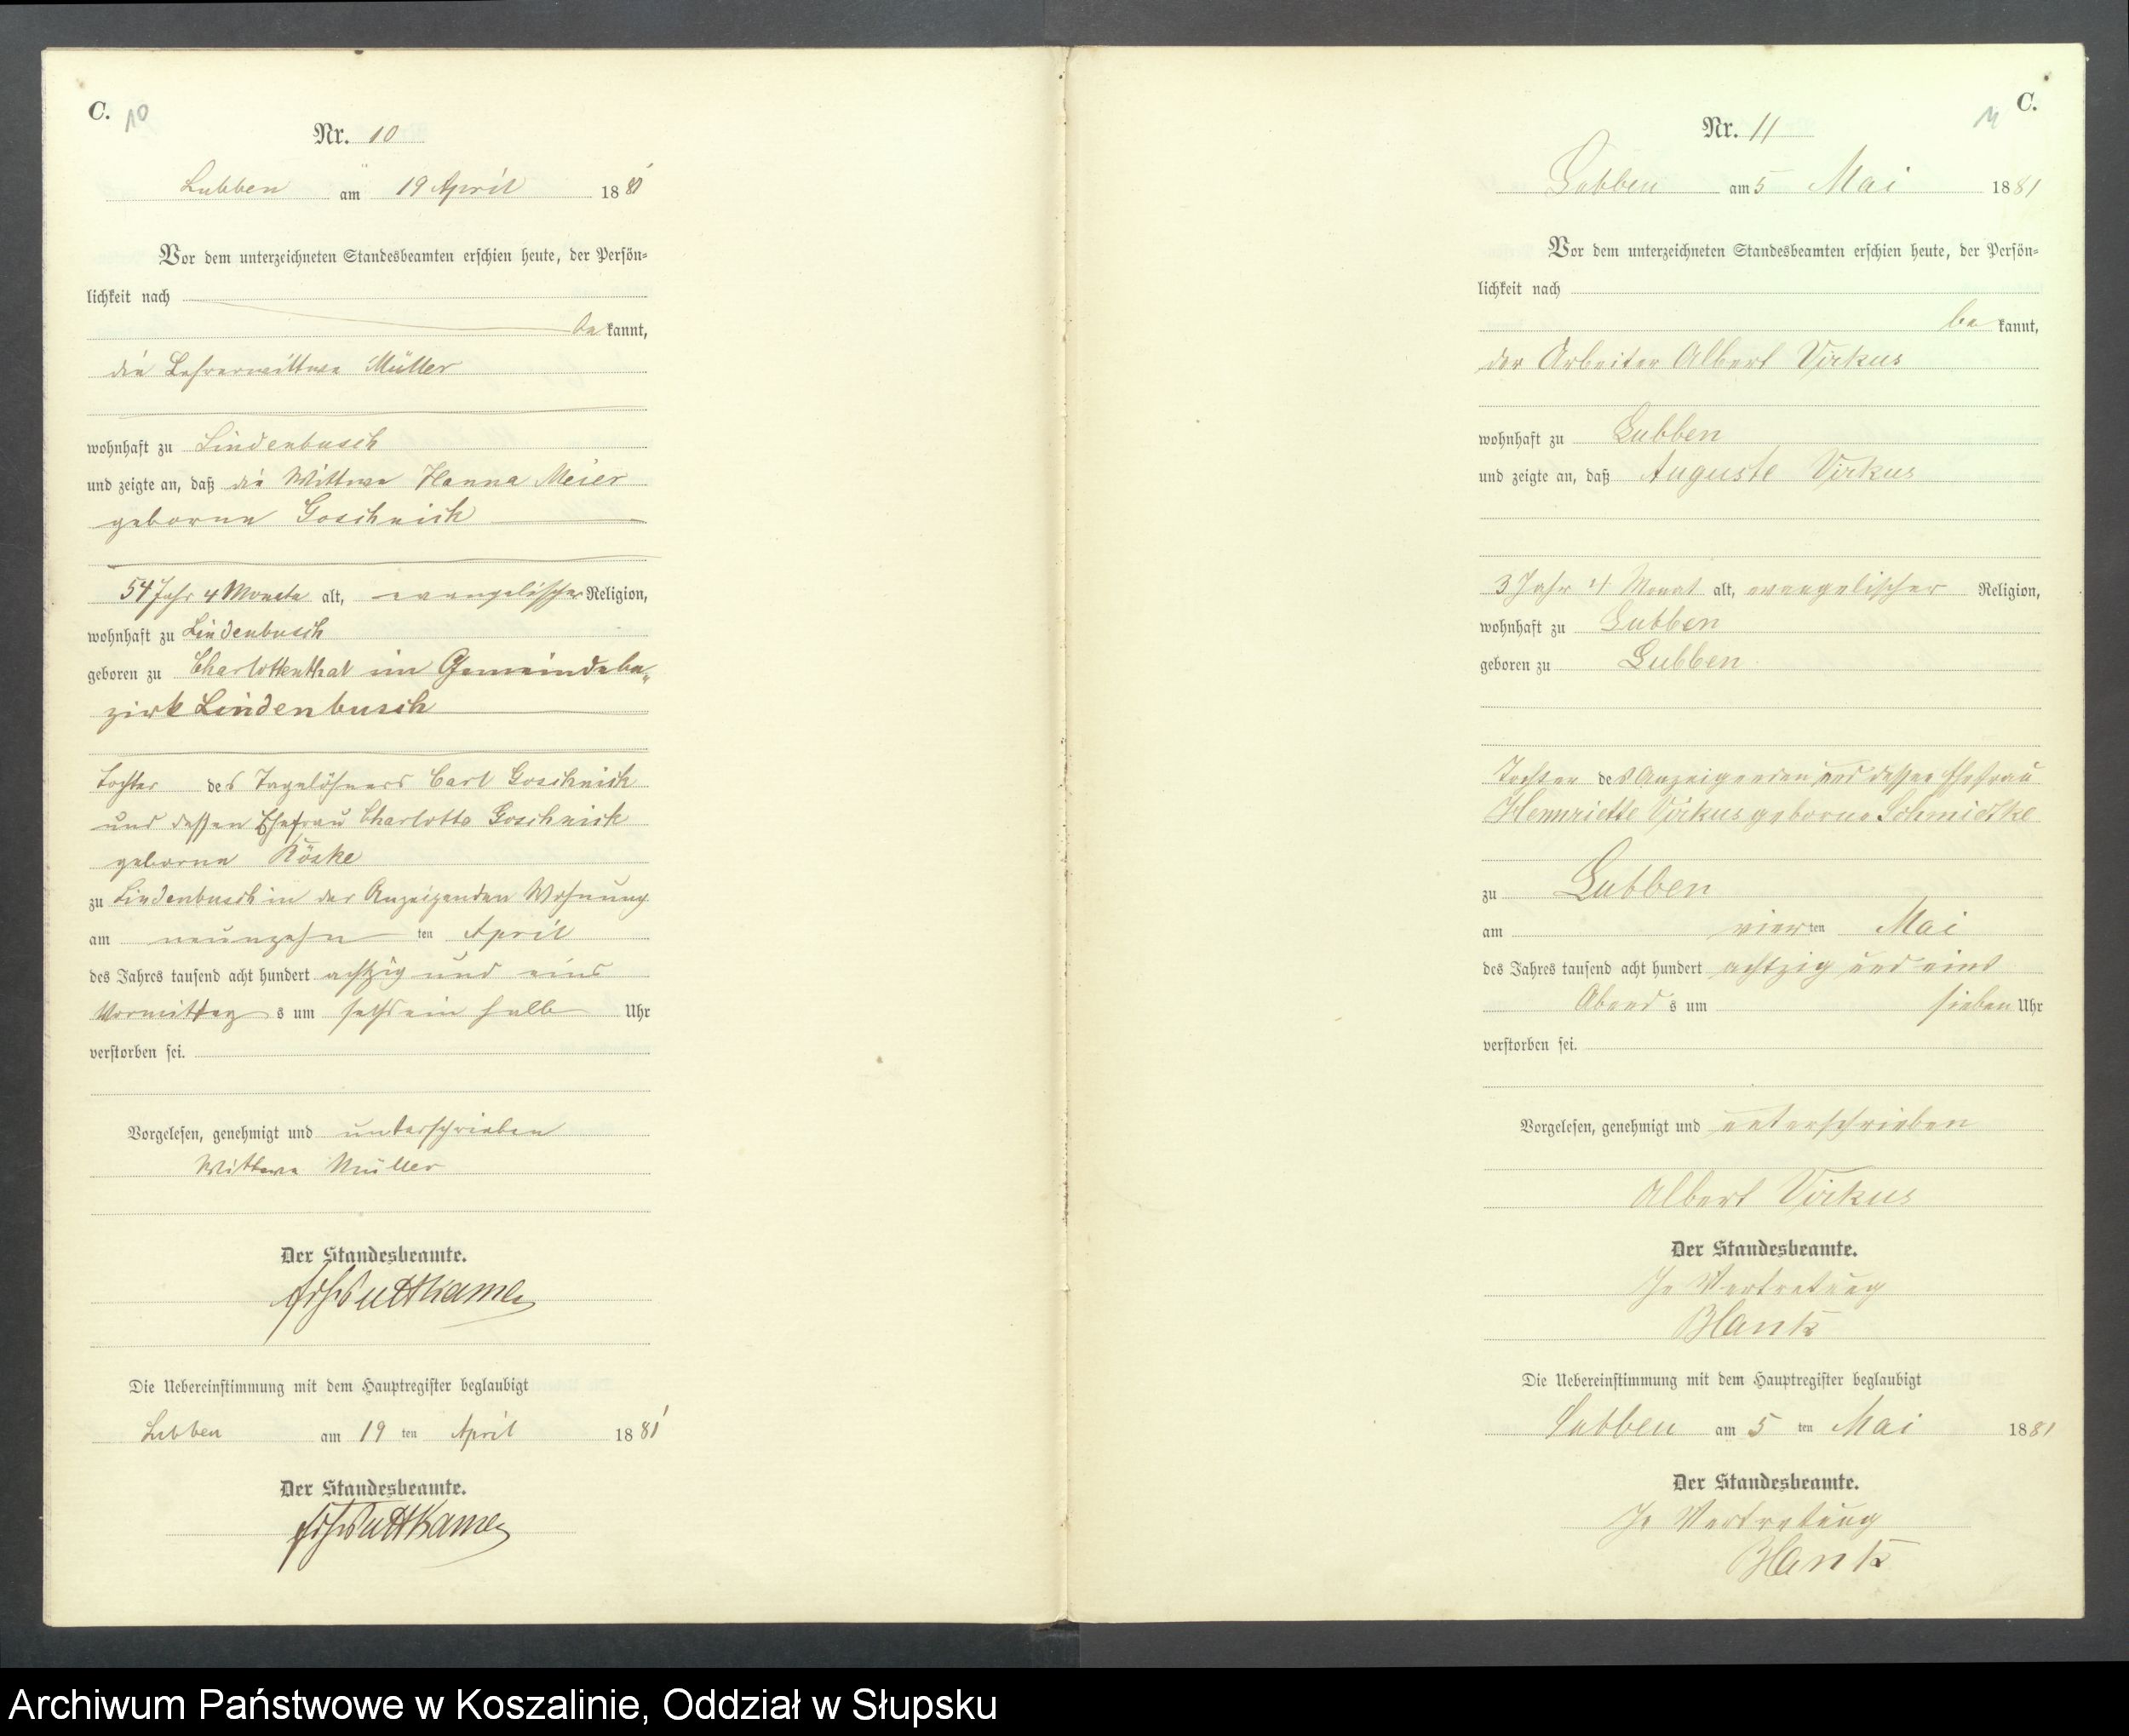 C.
10
Nr. 10
Lubben am 19 April 1881
Vor dem unterzeichneten Standesbeamten erschien heute, der Persön-
lichkeit nach
be kannt,
die Lehrerwittwe Müller
wohnhaft zu Lindenbusch
und zeigte an, daß die Wittwe Hanna Meier
geborne Goschnick
54 Jahr 4 Monate alt, evangelischer Religion,
wohnhaft zu Lindenbusch
geboren zu Charlottenthal im Gemeindebe-
zirk Lindenbusch
Tochter des Tagelöhners Carl Goschnick
und dessen Ehefrau Charlotte Goschnick
geborne Röske
zu Lindenbusch in der Anzeigenden Wohnung
am neunzehn ten April
des Jahres tausend acht hundert achtzig und eins
Vormittag s um sechs ein halb Uhr
verstorben sei.
Vorgelesen, genehmigt und unterschrieben
Wittwe Müller
Der Standesbeamte.
Puttkamer
Die Uebereinstimmung mit dem Hauptregister beglaubigt
Lubben am 19 ten April 1881
Der Standesbeamte.
Puttkamer
C.
11
Nr. 11
Lubben am 5 Mai 1881
Vor dem unterzeichneten Standesbeamten erschien heute, der Persön-
lichkeit nach
be kannt,
der Arbeiter Albert Virkus
wohnhaft zu Lubben
und zeigte an, daß Auguste Virkus
3 Jahr 4 Monat alt, evangelischer Religion,
wohnhaft zu Lubben
geboren zu Lubben
Tochter des Anzeigenden und dessen Ehefrau
Hennriette Virkus geborne Schmidtke
zu Lubben
am vier ten Mai
des Jahres tausend acht hundert achtzig und eins
Abend s um sieben Uhr
verstorben sei.
Vorgelesen, genehmigt und unterschrieben
Albert Virkus
Der Standesbeamte.
In Vertretung
Blank
Die Uebereinstimmung mit dem Hauptregister beglaubigt
Lubben am 5 ten Mai 1881
Der Standesbeamte.
In Vertretung
Blank
Archiwum Państwowe w Koszalinie, Oddział w Słupsku